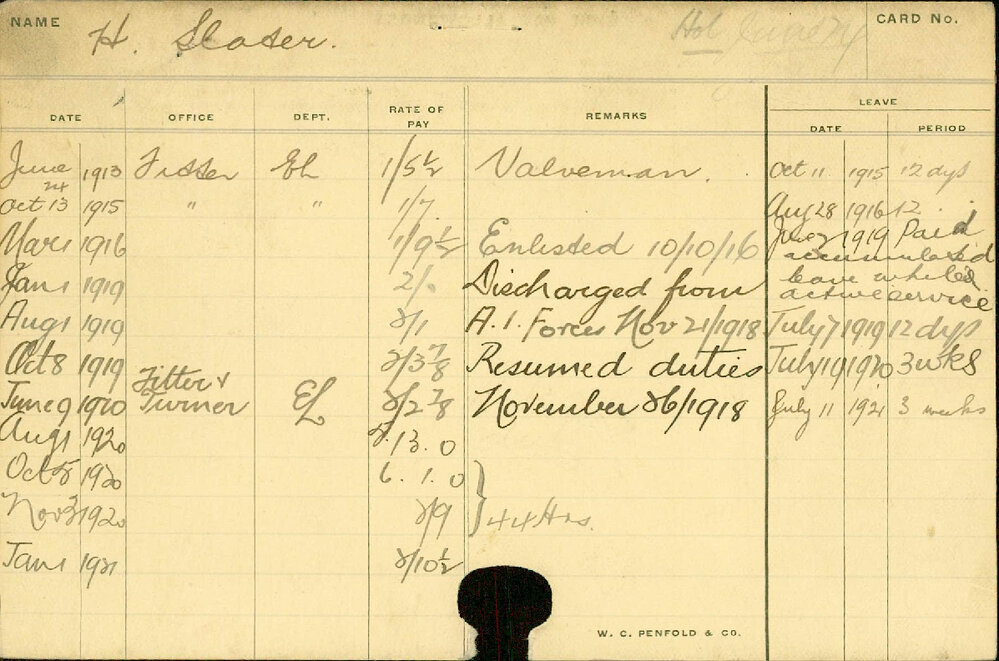 NAME H. Slater. CARD No.
LEAVE
DATE OFFICE DEPT. RATE OF PAY REMARKS DATE PERIOD
June 24 1913 Fitter EL 1/5½ Valveman. Oct 11 1915 12 dys
Oct 13 1915 " " 1/7 Aug 28 1916 12
Mar 1 1916 1/9½ Enlisted 10/10/16 1919 Paid
accumulated
Jan 1 1919 2/. Discharged from leave whilst
active service
Aug 1 1919 2/1 A.I. Forces Nov 21/1918 July 7 1919 12 dys
Oct 8 1919 2/3⅞ Resumed duties July 19 1920 3 wks
June 9 1920 Fitter & Turner EL 2/2⅞ November 26/1918 July 11 1921 3 weeks
Aug 1 1920 13.0
Oct 5 1920 6.1.0
Nov 3 1920 2/9 44 Hrs.
Jan 1 1921 2/10½
W. C. PENFOLD & CO.